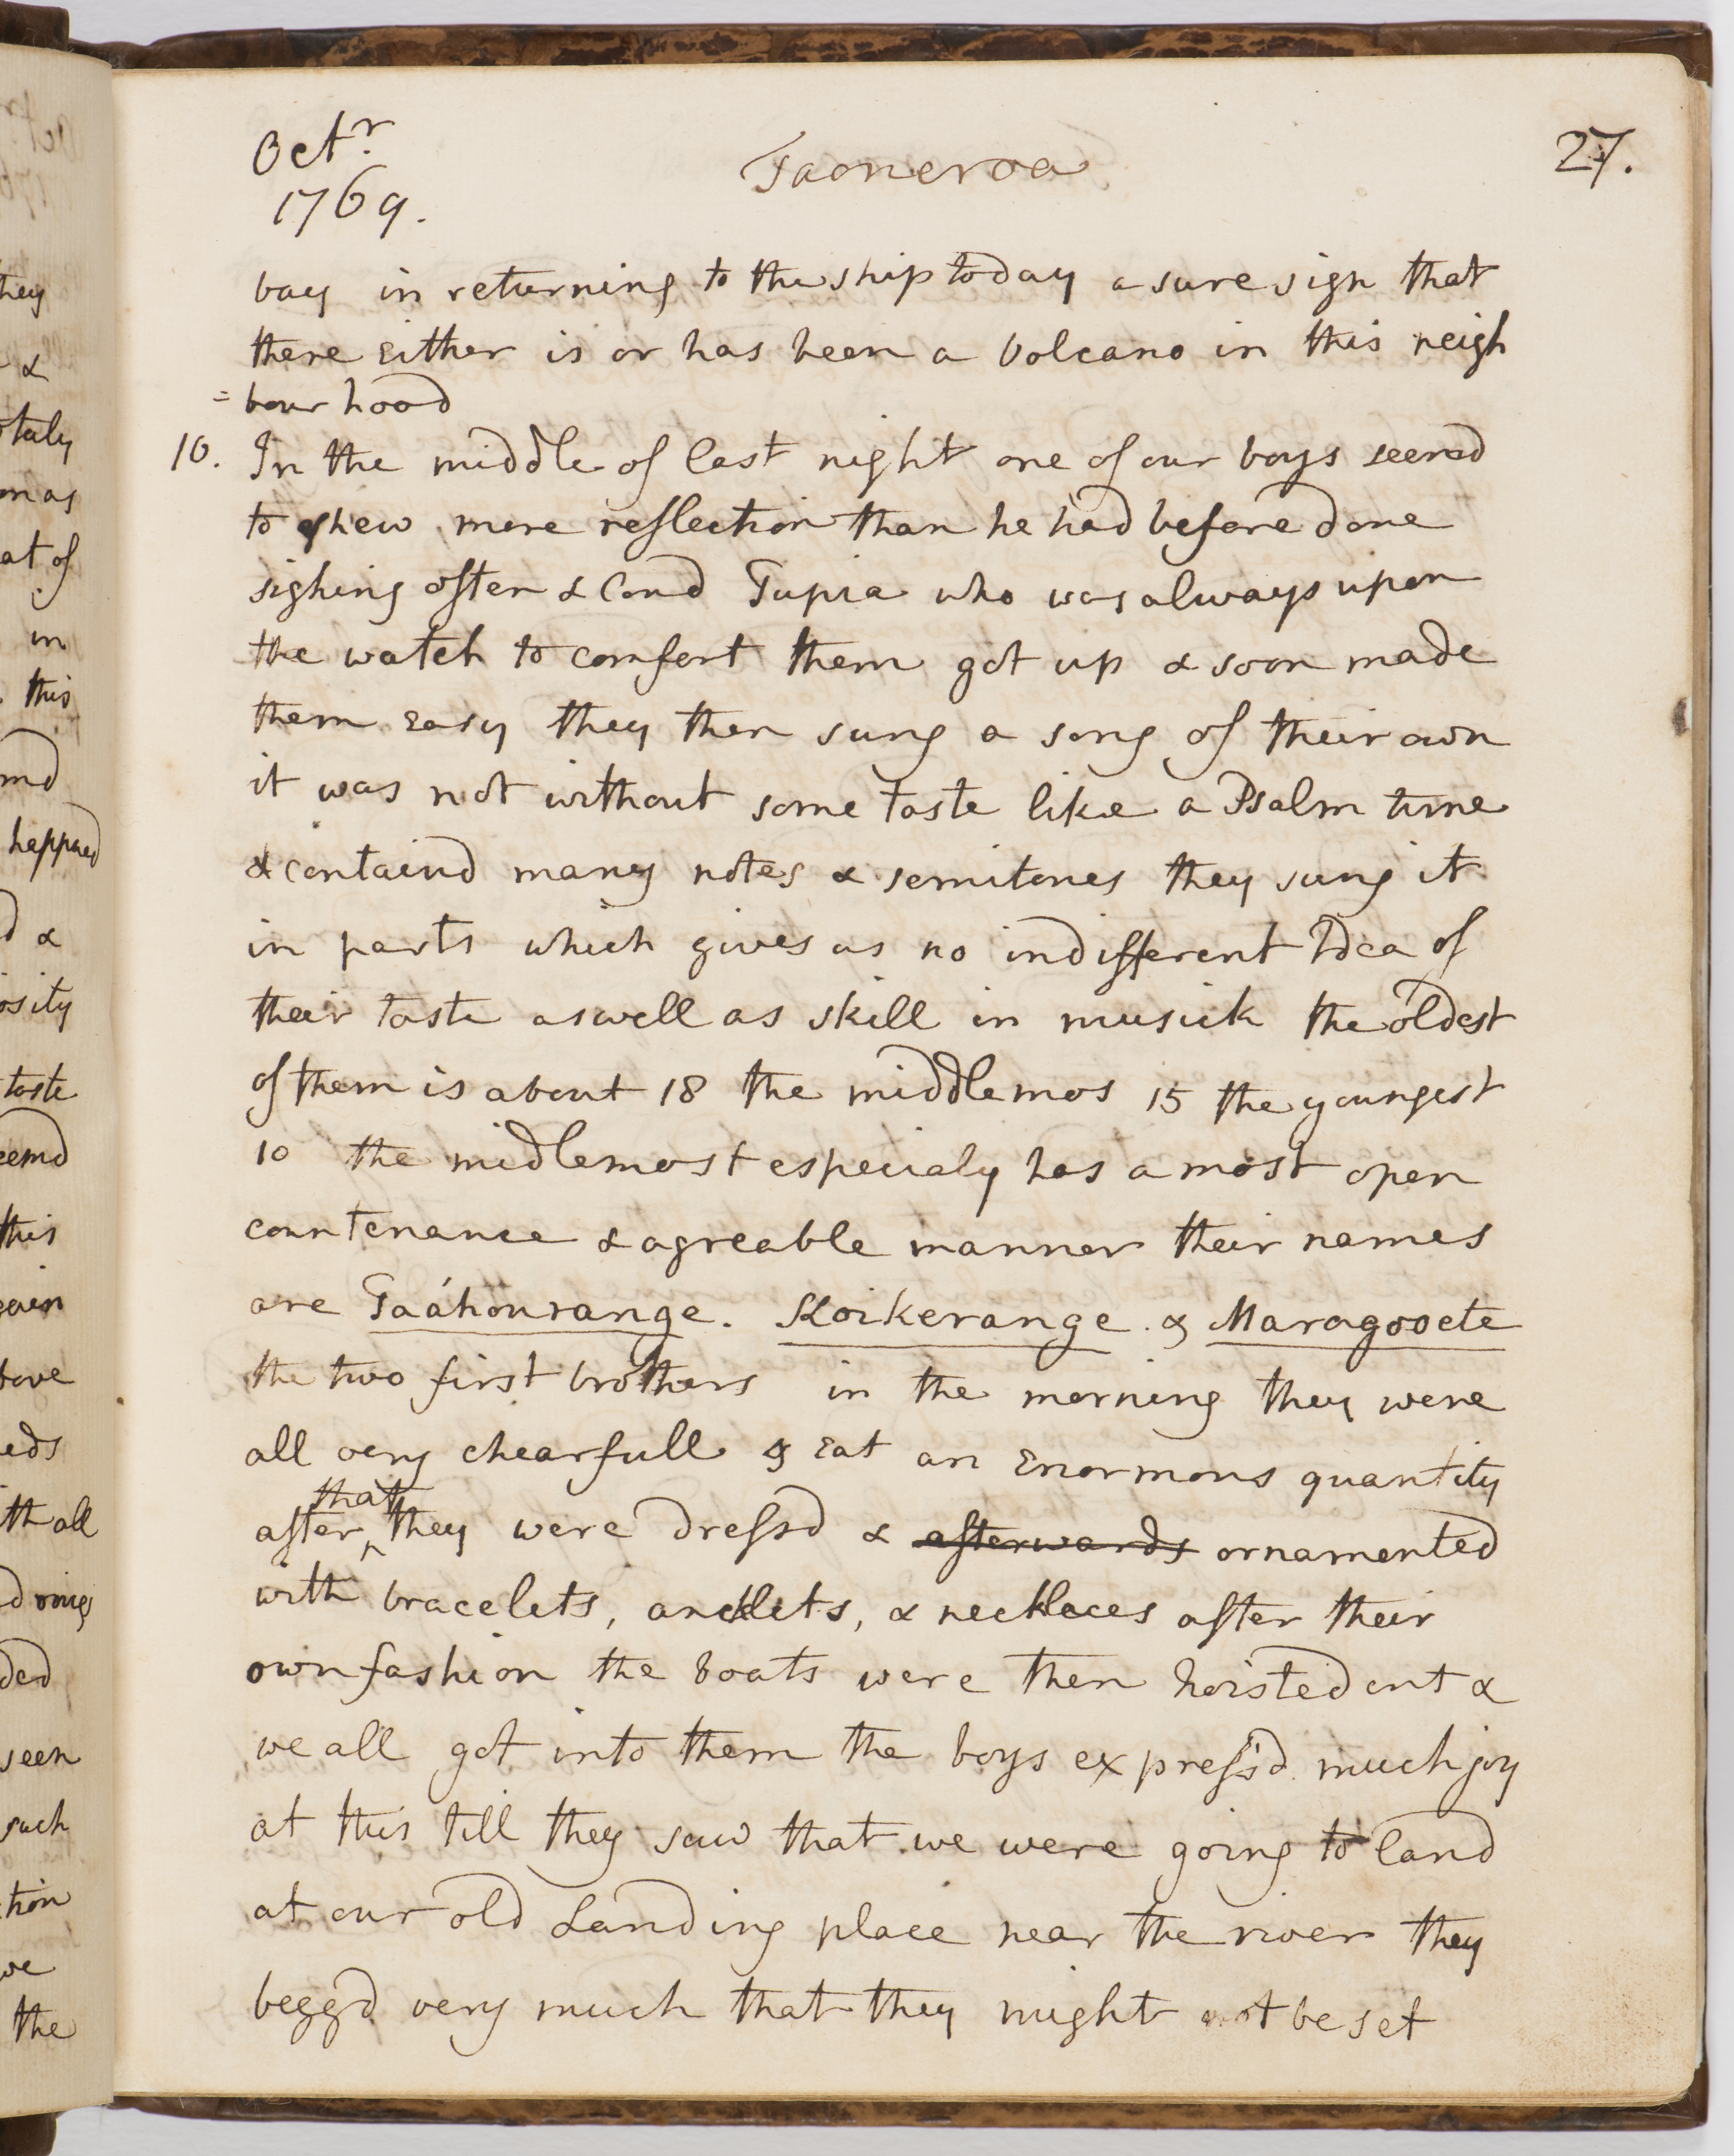 Octr.
1769.
Taoneroa
27.
bay in returning to the ship today a sure sign that
there Either is or has been a Volcano in this neigh
=bour hood
10. In the middle of last night one of our boys seemd
to shew more reflection than he had before done
sighing often & loud Tupia who was always upon
the watch to comfort them got up & soon made
them Easy they then sung a song of their own
it was not without some taste like a Psalm tune
& containd many notes & semitones they sung it
in parts which gives us no indifferent Idea of
their taste as well as skill in musick the oldest
of them is about 18 the middlemos 15 the youngest
10 the midlemost especialy has a most open
countenance & agreable manner their names
are Taáhourange. Koikerange. & Maragooete
the two first brothers in the morning they were
all very chearfull & Eat an Enormous quantity
after that they were dressd & afterwards ornamented
with bracelets, ancklets, & necklaces after their
own fashion the boats were then hoisted out &
we all got into them the boys express'd much joy
at this till they saw that we were going to land
at our old Landing place near the river they
beggd very much that they might not be set
hey
&
taly
on as
at of
in
this
md
happned
d &
osity
taste
eemd
this
gain
bove
eds
ith all
d rings
ded
seen
such
tion
we
the